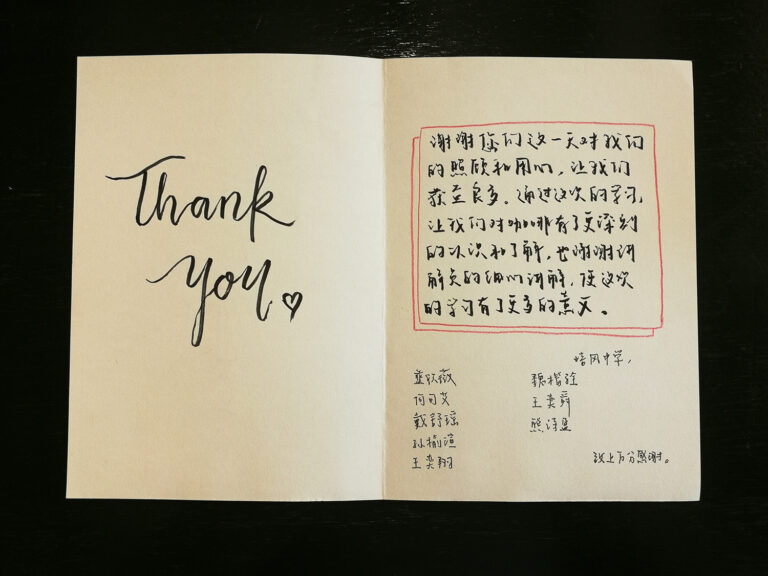 Thank
you
谢谢您们这一天对我们
的照顾和用心，让我们
获益良多。通过这次的学习，
让我们对咖啡有了更深刻
的认识和了解，也谢谢讲
解员的细心讲解，使这次
的学习有了更多的意义。
培风中学，
戴舒瑶
王奕舜
熊诗盈
王奕翔
致上万分感谢。